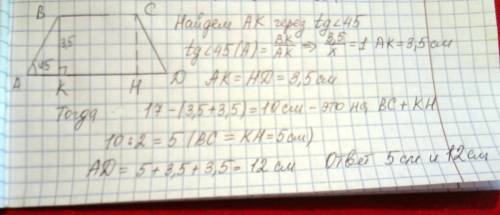 B C Найдем АК через tg∠45
3,5 tg∠45(A) = BK/AK ⇒ 3,5/x = 1 АК = 3,5 см
A 45 K H D АК = HD = 3,5 см
Тогда 17 - (3,5 + 3,5) = 10 см - это на BC + KH
10 : 2 = 5 (BC = KH = 5 см)
AD = 5 + 3,5 + 3,5 = 12 см Ответ 5 см и 12 см